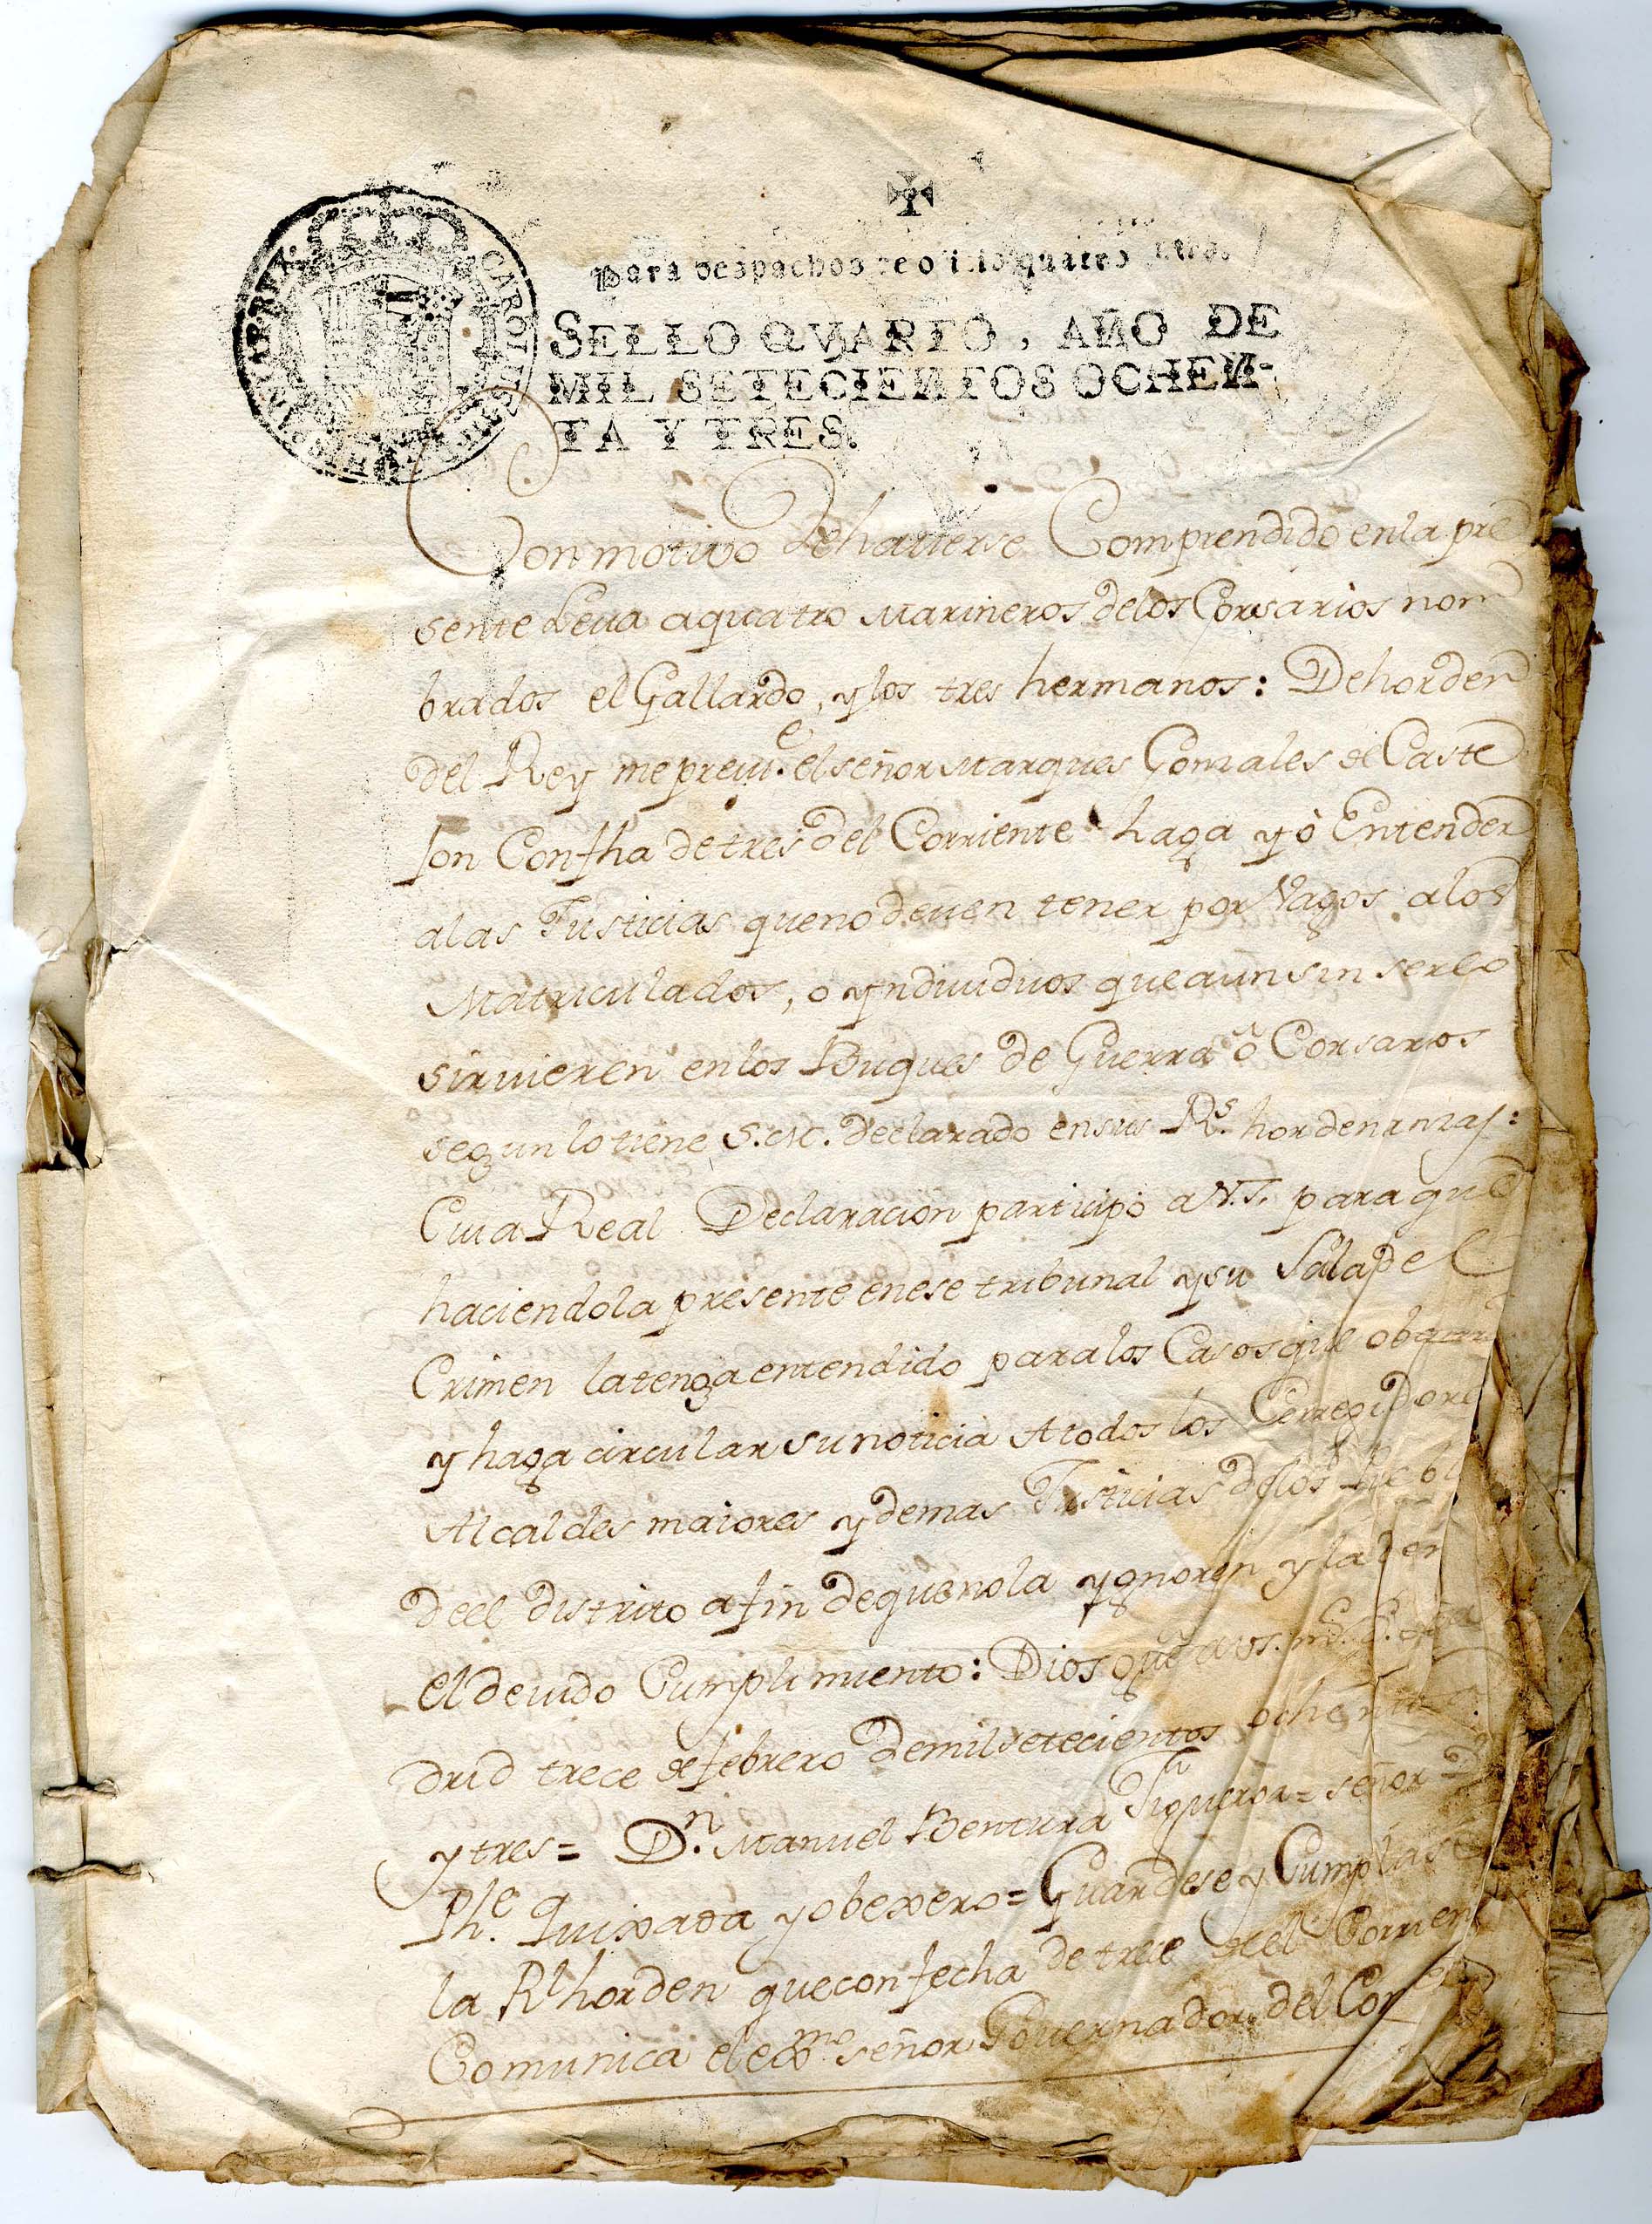 Para despachos de oficio quatro mrs.
SELLO QVARTO, AÑO DE
MIL SETECIENTOS OCHEN-
TA Y TRES.
Con motivo de haverse Comprendido en la pre
sente Leva a quatro Marineros de los Corsarios nom
brados el Gallardo, y los tres hermanos: De horden
del Rey me previe. el señor Marques Gonzales de Caste
jon Con fha de tres del Corriente haga yò Entender
a las Justicias que no deven tener por Vagos a los
Matriculados, o yndividuos que aun sin serlo
sirvieren en los Buques de Guerra ô Corsarios
segun lo tiene S. M. declarado en sus Rs. hordenanzas:
Cuia Real Declaracion participo a V.S. para que
haciendola presente en ese tribunal y su Sala de el
Crimen la tenga entendido para los Casos que
y haga circular su noticia A todos los Corregidore
Alcaldes maiores y demas Justicias de los Puebl
de el distrito a fin de que no la ygnoren y la
el devido Cumplimiento: Dios gue a vs. ms. as.
drid trece de febrero de mil setecientos ochenta
y tres = Dn. Manuel Bentura Figueroa = señor Dn
Phe. Quixada y obexero = Guardese y Cumplase
la Rl horden que con fecha de trece del Corrien
Comunica el exmo. señor Governador del Consejo